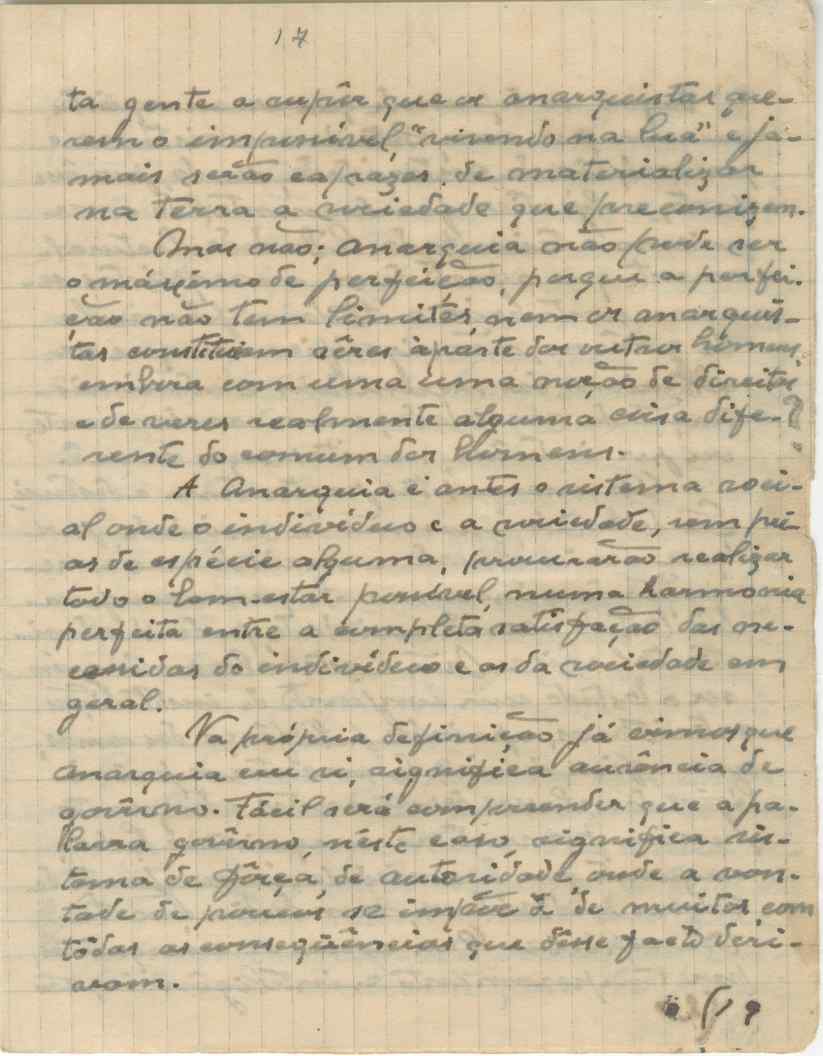 17
ta gente a supôr que os anarquistas que-
rem o impossível, "vivendo na lua" e já-
mais serão capazes de materializar
na Terra a sociedade que preconizam.
Mas não; Anarquia não pode ser
o máximo de perfeição, porque a perfei-
ção não tem limites, nem os anarquis-
tas constituem sêres àparte dos outros homens,
embora com uma uma noção de direitos
e deveres realmente alguma coisa dife-
rente do comum dos homens.
A Anarquia é antes o sistema soci-
al onde o indivíduo e a sociedade, sem pei-
as de espécie alguma, procurarão realizar
todo o bem-estar possível, numa harmonia
perfeita entre a completa satisfação das ne-
cessidas do indivíduo e as da sociedade em
geral.
Na própria definição já vimos que
Anarquia em si, significa ausência de
govêrno. Fácil será compreender que a pa-
lavra govêrno, nêste caso, significa sis-
tema de fôrça, de autoridade, onde a von-
tade de poucos se impõe à de muitos, com
tôdas as conseqüências que dêsse facto deri-
vam.